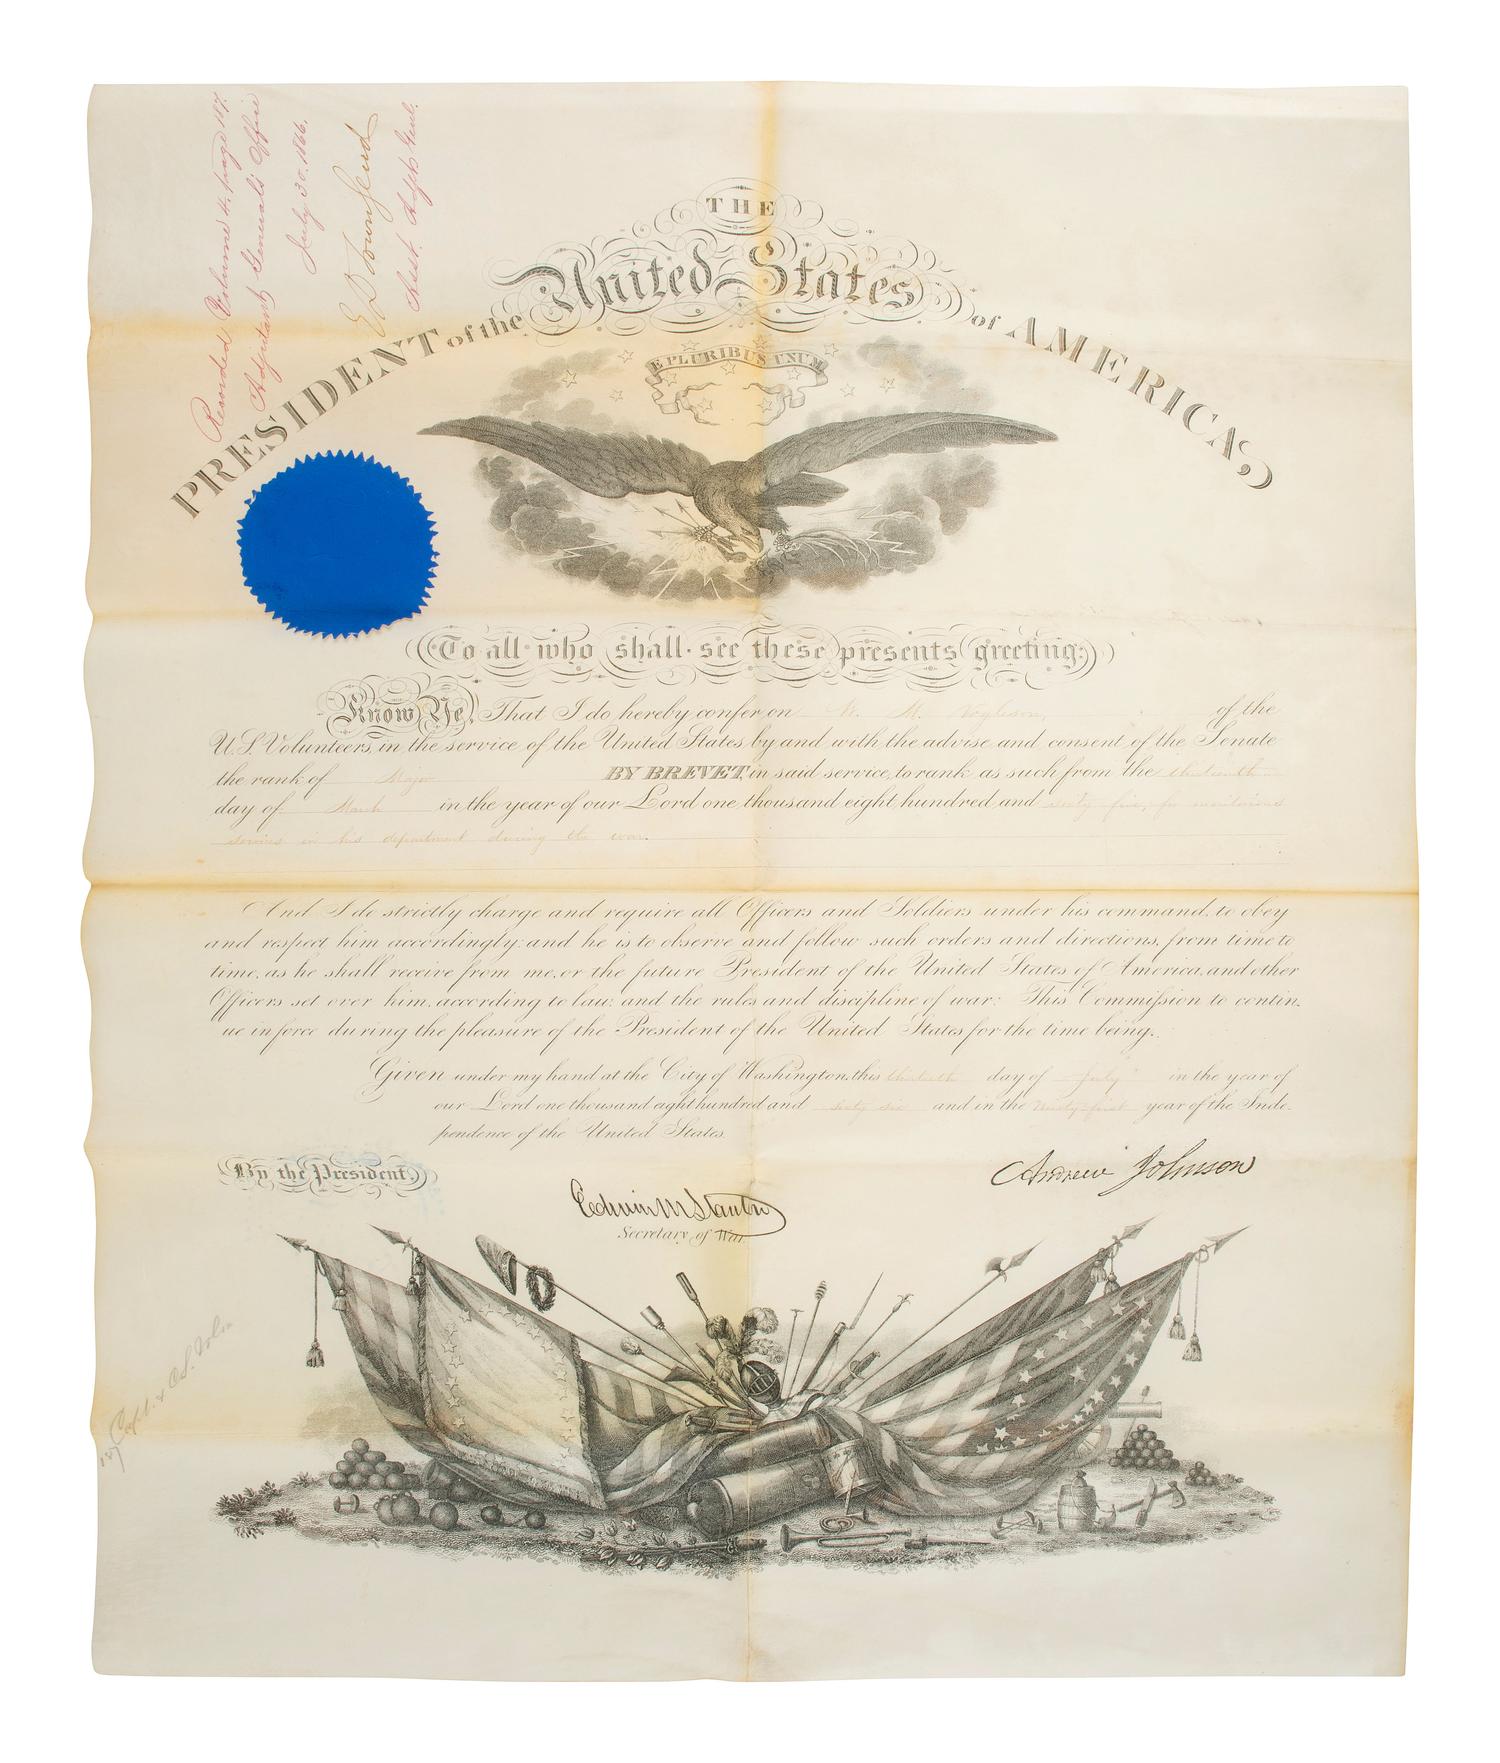 Recorded Volume 4, page 187.
Adjutant General's Office
July 30. 1866.
E D Townsend
Asst. Adjt. Genl.
THE
PRESIDENT of the United States of AMERICA,
E PLURIBUS UNUM
To all who shall see these presents greeting:
Know Ye, That I do hereby confer on W. M. of the
U.S. Volunteers, in the service of the United States by and with the advise and consent of the Senate
the rank of Major BY BREVET, in said service, to rank as such from the thirteenth
day of March in the year of our Lord one thousand eight hundred and sixty five, for meritorious
services in his department during the war.
And I do strictly charge and require all Officers and Soldiers under his command, to obey
and respect him accordingly: and he is to observe and follow such orders and directions, from time to
time, as he shall receive from me, or the future President of the United States of America, and other
Officers set over him, according to law: and the rules and discipline of war: This Commission to contin-
ue in force during the pleasure of the President of the United States for the time being.
Given under my hand at the City of Washington, this thirtieth day of July in the year of
our Lord one thousand eight hundred and sixty six and in the ninety-first year of the Inde-
pendence of the United States.
By the President.
Andrew Johnson
Edwin M Stanton
Secretary of War.
Capt. & C.S. Vols